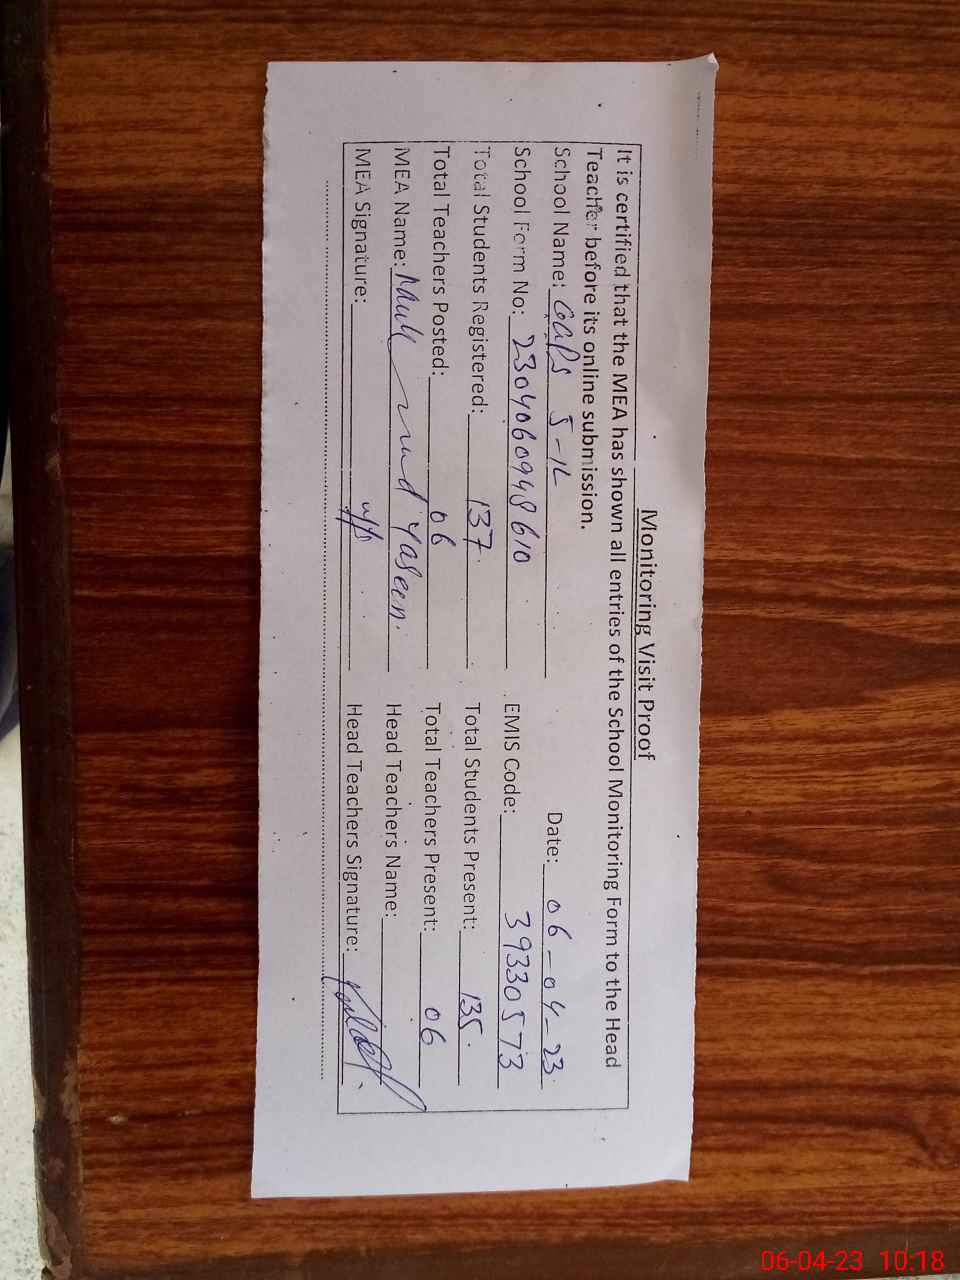 Monitoring Visit Proof
It is certified that the MEA has shown all entries of the School Monitoring Form to the Head
Teacher before its online submission.
School Name: GGPS 5-1L Date: 06-04-23
School Form No: 2304060948610 EMIS Code: 39330573
Total Students Registered: 137 Total Students Present: 135
Total Teachers Posted: 06 Total Teachers Present: 06
MEA Name: Yaseen Head Teachers Name:
MEA Signature: Head Teachers Signature:
06-04-23 10:18